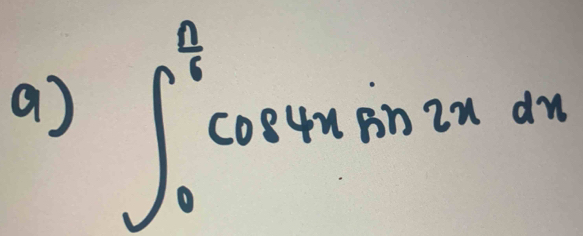 a) ∫₀^(π/6) cos4x sin 2x dx